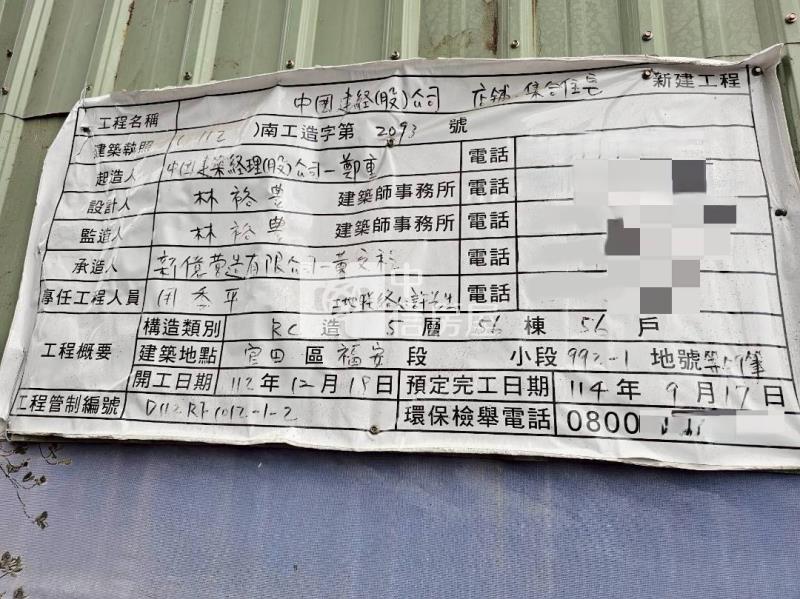 工程名稱 中國建經(股)公司 店鋪.集合住宅 新建工程
建築執照 (112)南工造字第 2093 號
起造人 中國建築經理(股)公司-鄭重 電話
設計人 林裕豊 建築師事務所 電話
監造人 林裕豊 建築師事務所 電話
承造人 新億營造有限公司-黃文 電話
專任工程人員 平 電話
工程概要 構造類別 RC 造 5 層 56 棟 56 戶
建築地點 官田 區 福安 段 小段 992-1 地號等59筆
開工日期 112 年 12 月 19 日 預定完工日期 114 年 9 月 17 日
工程管制編號 環保檢舉電話 0800